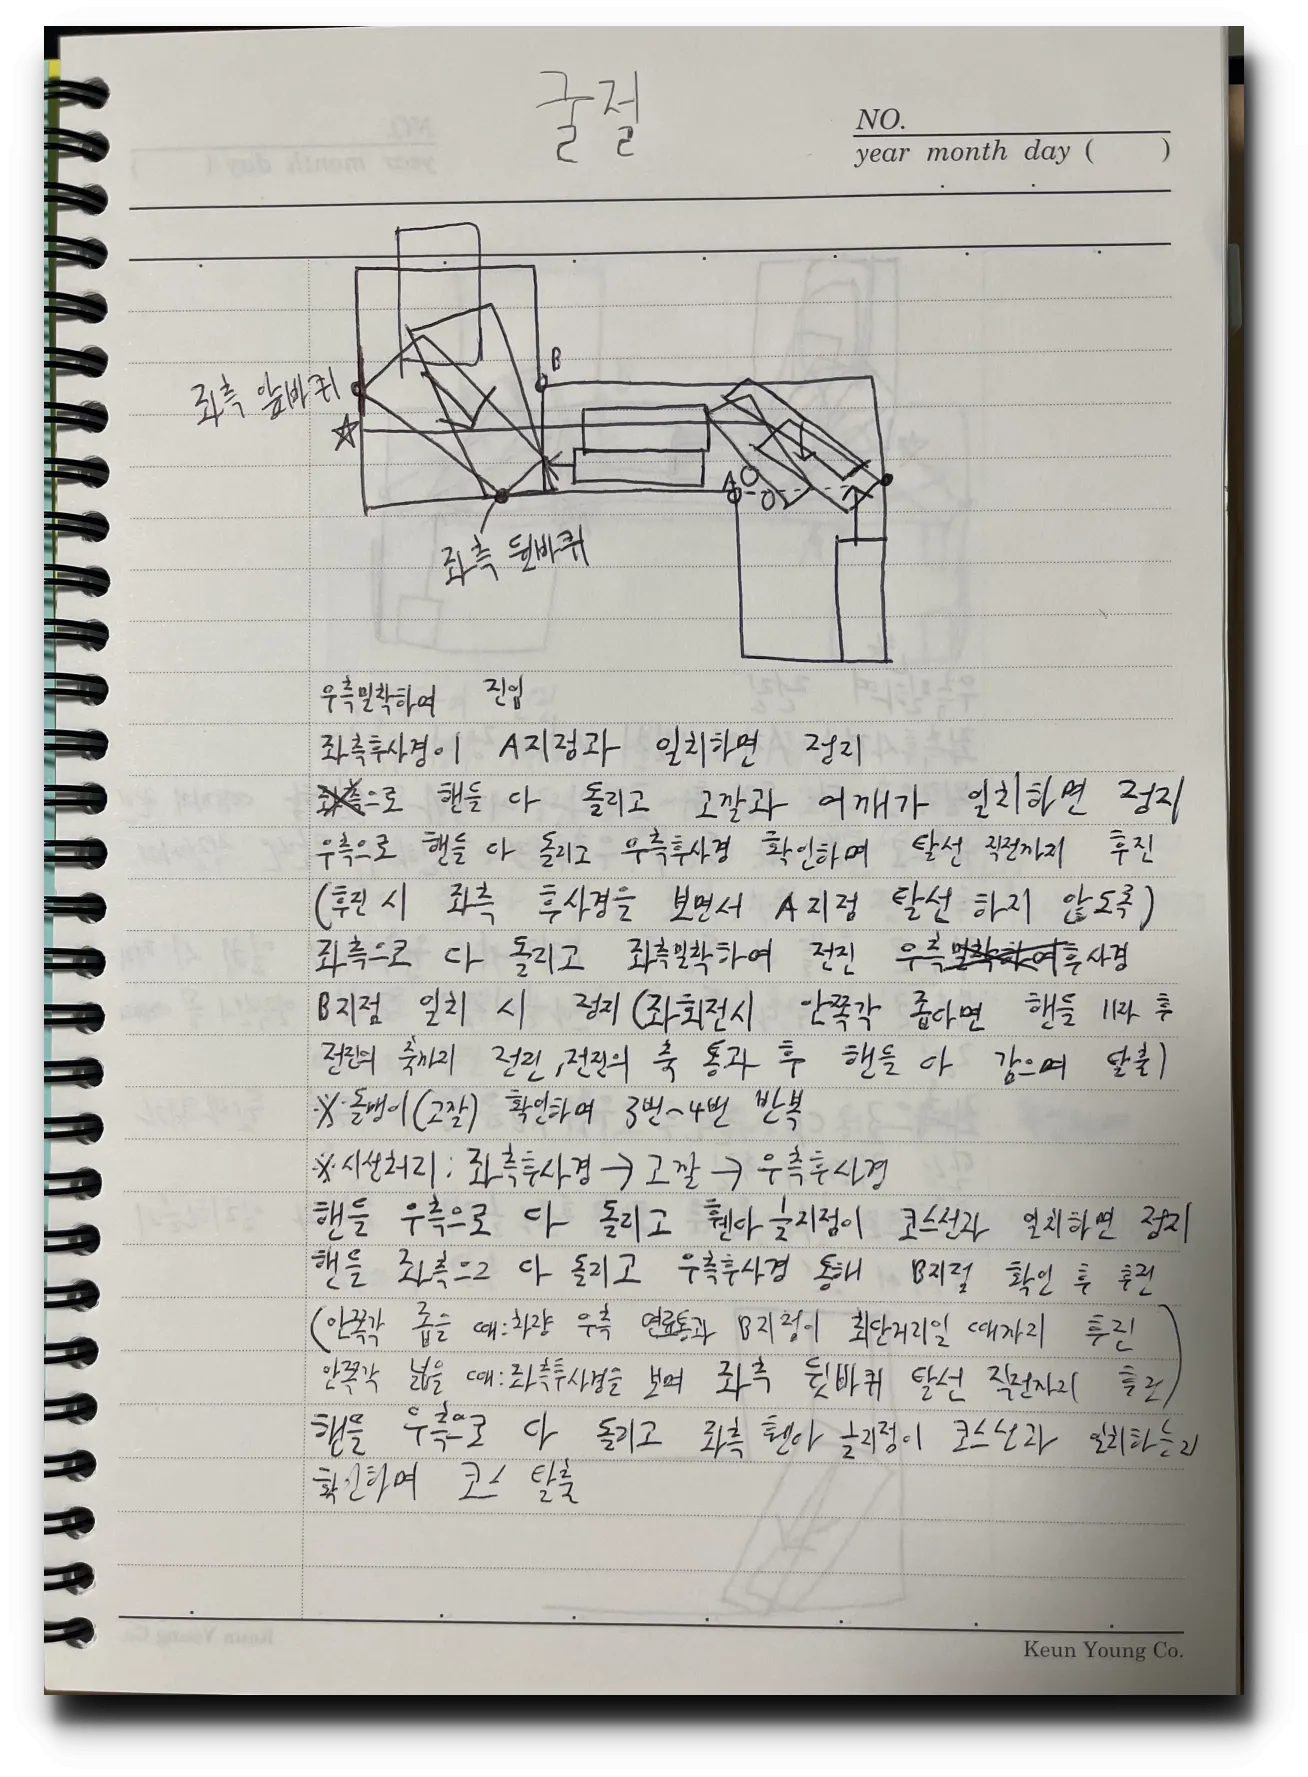 굴절
NO.
year month day ( )
B
좌측 앞바퀴
☆
A
좌측 뒷바퀴
우측밀착하여 진입
좌측후사경이 A지점과 일치하면 정리
좌측으로 핸들 다 돌리고 고깔과 어깨가 일치하면 정지
우측으로 핸들 다 돌리고 우측후사경 확인하며 탈선 직전까지 후진
(후진 시 좌측 후사경을 보면서 A지점 탈선 하지 않도록)
좌측으로 다 돌리고 좌측밀착하여 전진 우측밀착하여후사경
B지점 일치 시 정지 (좌회전시 안쪽각 좁다면 핸들 11자 후
전진의 축까지 전진, 전진의 축 통과 후 핸들 다 감으며 탈출)
※ 돌맹이(고깔) 확인하여 3번~4번 반복
※ 시선처리 : 좌측후사경 → 고깔 → 우측후사경
핸들 우측으로 다 돌리고 휀다 늘지점이 코스선과 일치하면 정지
핸들 좌측으로 다 돌리고 우측후사경 통해 B지점 확인 후 후진
(안쪽각 좁을 때:차량 우측 연료통과 B지점이 최단거리일 때까지 후진
안쪽각 넓을 때:좌측후사경을 보며 좌측 뒷바퀴 탈선 직전까지 후진)
핸들 우측으로 다 돌리고 좌측 휀다 늘지점이 코스선과 일치하는지
확인하며 코스 탈출
Keun Young Co.